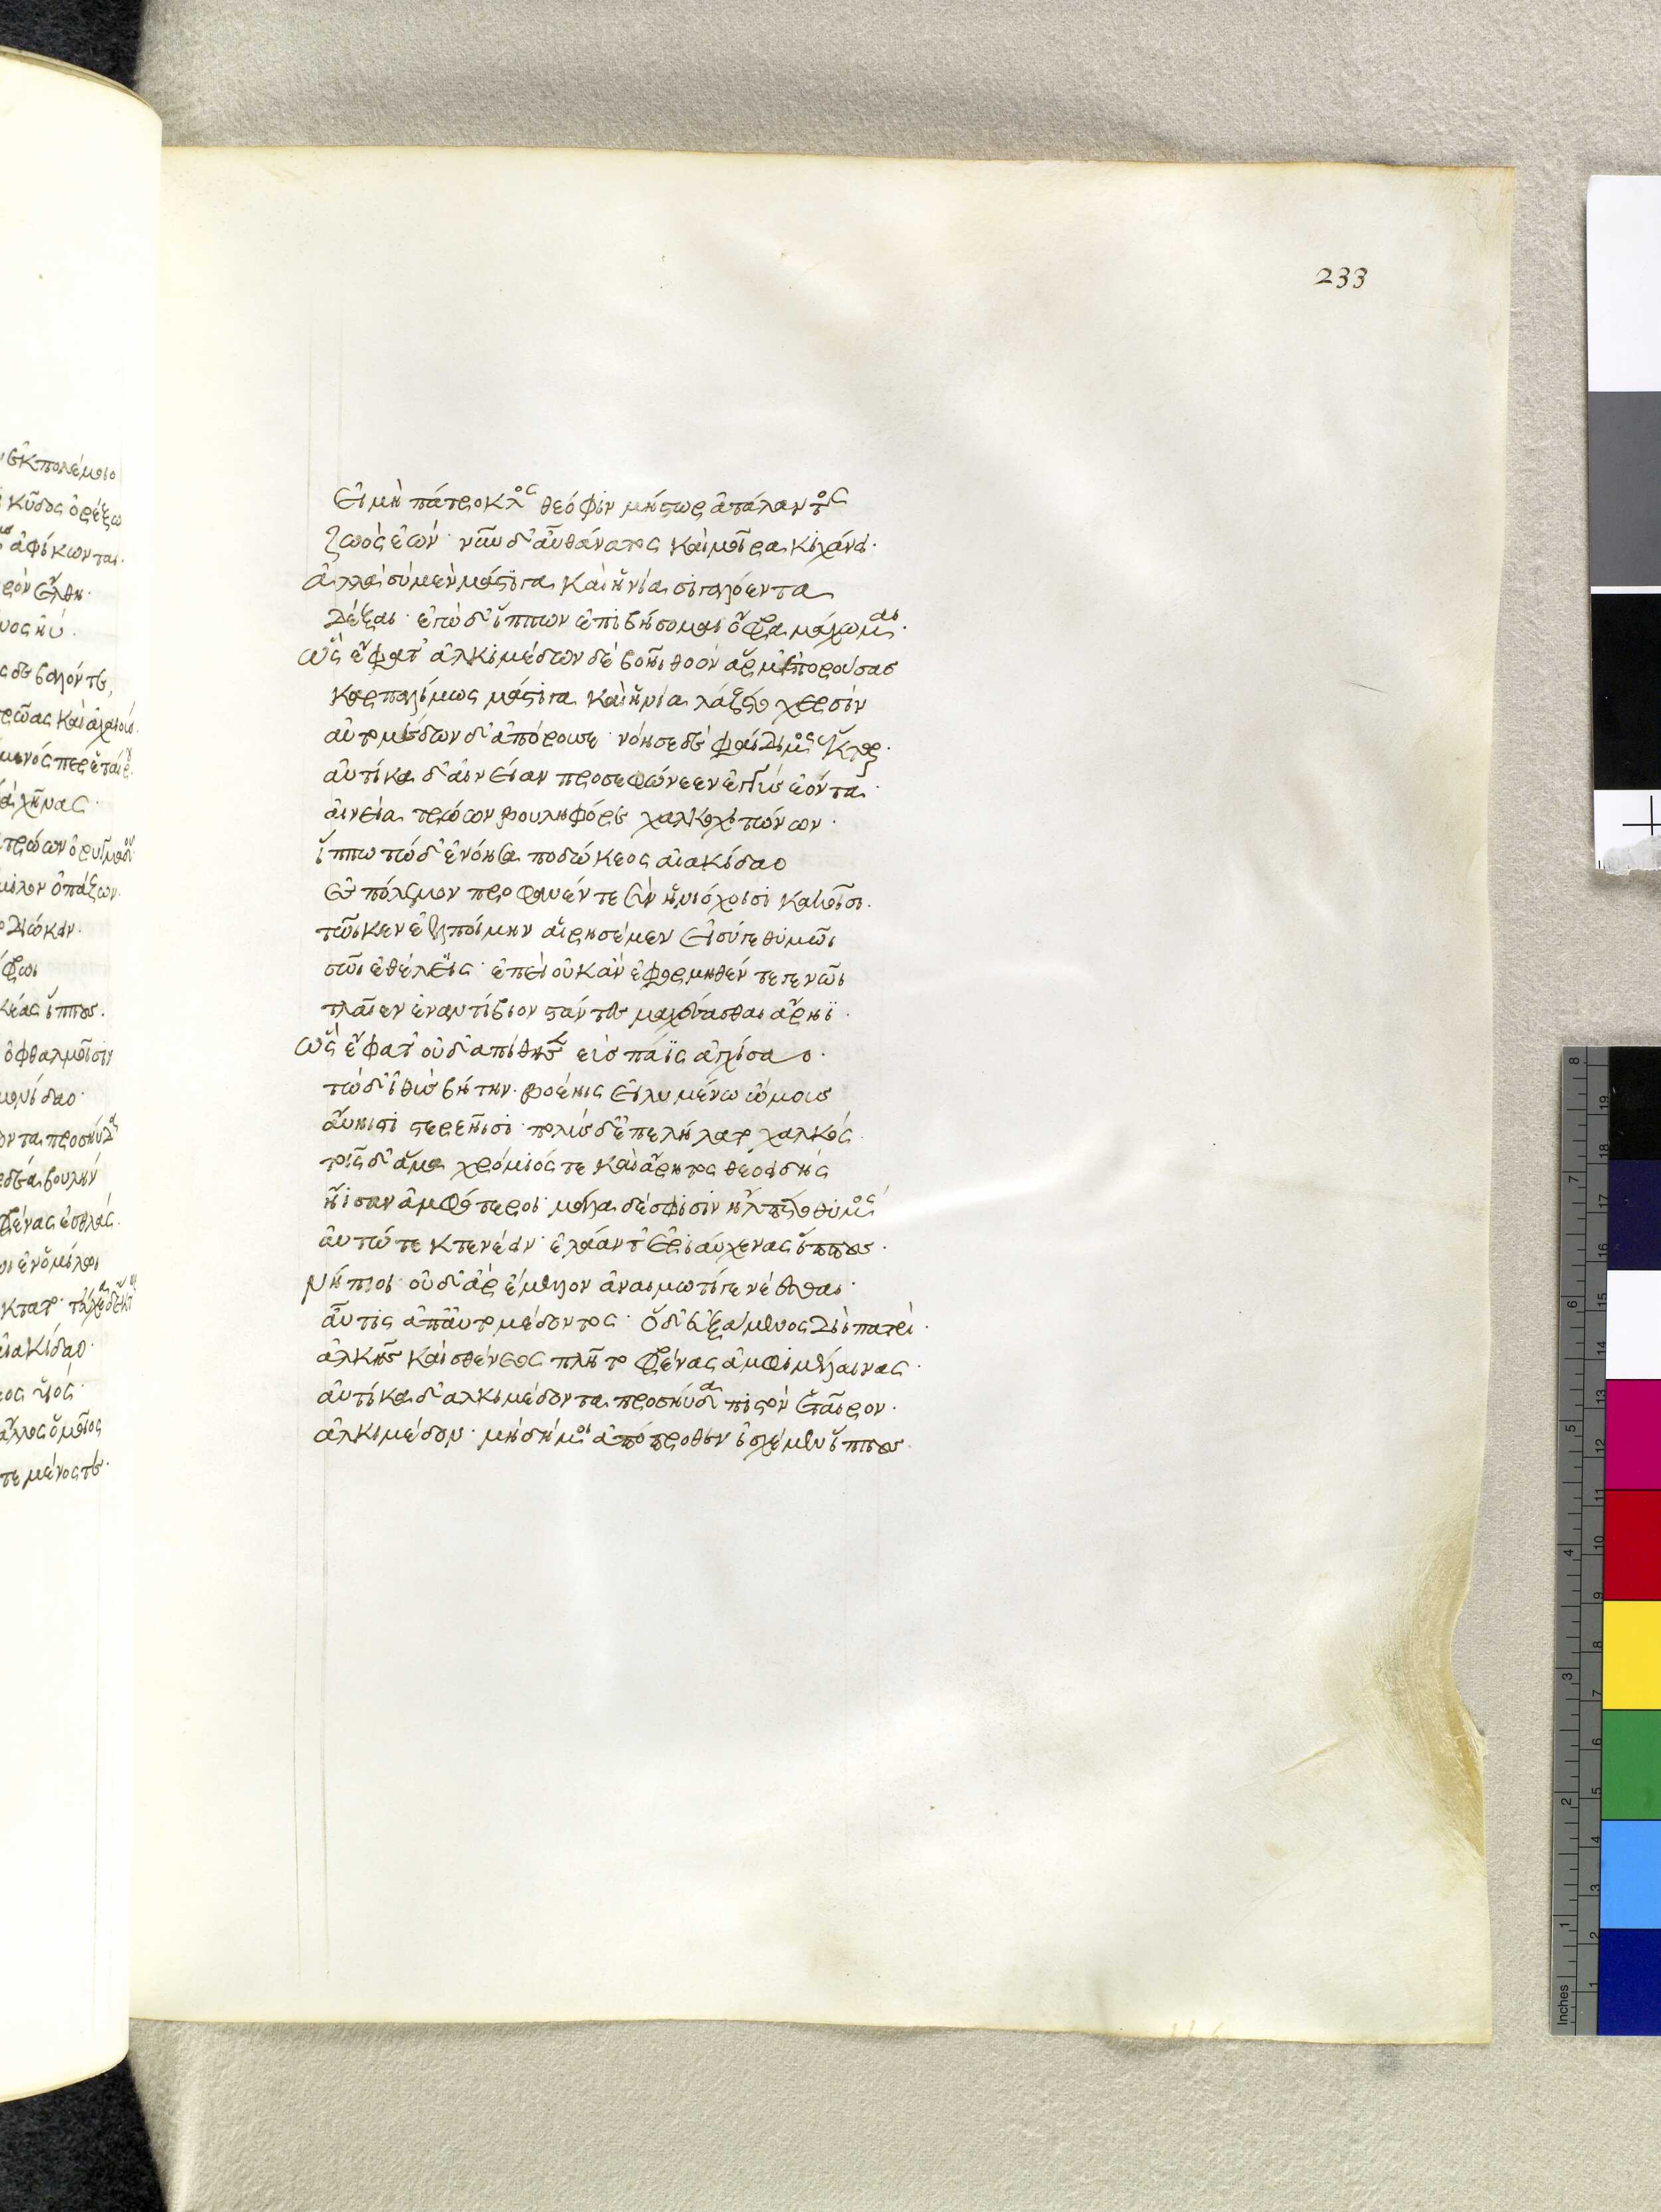 233
Εἰ μὴ πάτροκλος θεόφιν μήστωρ ἀτάλαντος
ζωὸς ἐών· νῦν δ' αὖ θάνατος καὶ μοῖρα κιχάνει·
ἀλλὰ σὺ μὲν μάστιγα καὶ ἡνία σιγαλόεντα
δέξαι· ἐγὼ δ' ἵππων ἐπιβήσομαι ὄφρα μάχωμαι·
ὣς ἔφατ' ἀλκιμέδων δὲ βοηθοὸν ἅρμ' ἐπορούσας
καρπαλίμως μάστιγα καὶ ἡνία λάζετο χερσὶν
αὐτομέδων δ' ἀπόρουσε· νόησε δὲ φαίδιμος ἕκτωρ·
αὐτίκα δ' αἰνείαν προσεφώνεεν ἐγγὺς ἐόντα·
αἰνεία τρώων βουληφόρε χαλκοχιτώνων·
ἵππω τώδ' ἐνόησα ποδώκεος αἰακίδαο
ἐς πόλεμον προφανέντε σὺν ἡνιόχοισι κακοῖσι·
τῶι κεν ἐελποίμην αἱρησέμεν εἰ σύ γε θυμῶι
σῶι ἐθέλεις· ἐπεὶ οὐκ ἂν ἐφορμηθέντε γε νῶι
τλαῖεν ἐναντίβιον στάντες μαχέσασθαι ἄρηϊ·
ὣς ἔφατ' οὐδ' ἀπίθησεν ἐὺς πάϊς ἀγχίσαο·
τὼ δ' ἰθὺς βήτην· βοέηις εἰλυμένω ὤμους
αὔηισι στερεῆισι· πολὺς δ' ἐπελήλατο χαλκός·
τοῖς δ' ἅμα χρόμιός τε καὶ ἄρητος θεοειδὴς
ἤισαν ἀμφότεροι· μάλα δέ σφισιν ἤλπετο θυμὸς
αὐτώ τε κτενέειν· ἐλάαν τ' ἐριαύχενας ἵππους·
νήπιοι· οὐδ' ἂρ ἔμελλον ἀναιμωτί γε νέεσθαι·
αὖτις ἀπ' αὐτομέδοντος· ὃ δ' εὐξάμενος διὶ πατρὶ·
ἀλκῆς καὶ σθένεος πλῆτο φρένας ἀμφιμελαίνας·
αὐτίκα δ' ἀλκιμέδοντα προσηύδα πιστὸν ἑταῖρον·
ἀλκιμέδον· μὴ δή μοι ἀπόπροθεν ἰσχέμεν ἵππους·